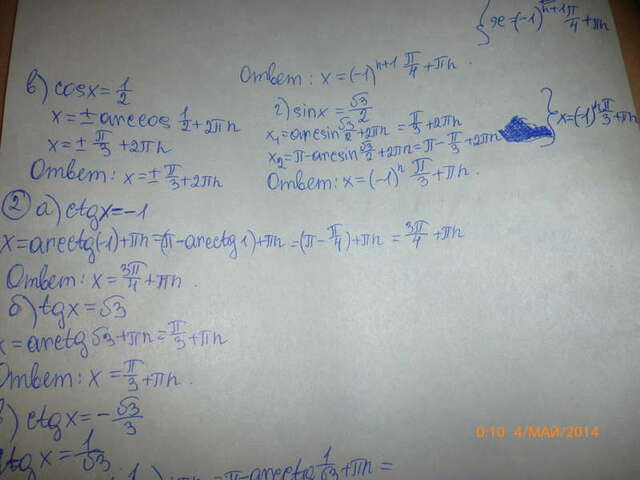 x=(-1)^{n+1} π/4 + πn
Ответ: x = (-1)^{n+1} π/4 + πn.
в) cosx = 1/2
x = ± arccos 1/2 + 2πn
x = ± π/3 + 2πn
Ответ: x = ± π/3 + 2πn
г) sinx = √3/2
x₁ = arcsin √3/2 + 2πn = π/3 + 2πn
x₂ = π - arcsin √3/2 + 2πn = π - π/3 + 2πn
x = (-1)^n π/3 + πn
Ответ: x = (-1)^n π/3 + πn.
2 а) ctgx = -1
x = arcctg(-1) + πn = (π - arcctg 1) + πn = (π - π/4) + πn = 3π/4 + πn
Ответ: x = 3π/4 + πn.
б) tgx = √3
x = arctg √3 + πn = π/3 + πn
Ответ: x = π/3 + πn.
в) ctgx = -√3/3
tgx = 1/√3
= π - arcctg 1/√3 + πn =
0:10 4/МАЙ/2014